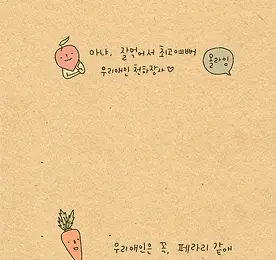 아냐, 잘먹어서 최고예뻐
우리애인 천하장사♡
올라잉
우리애인은 꼭, 페라리 같애